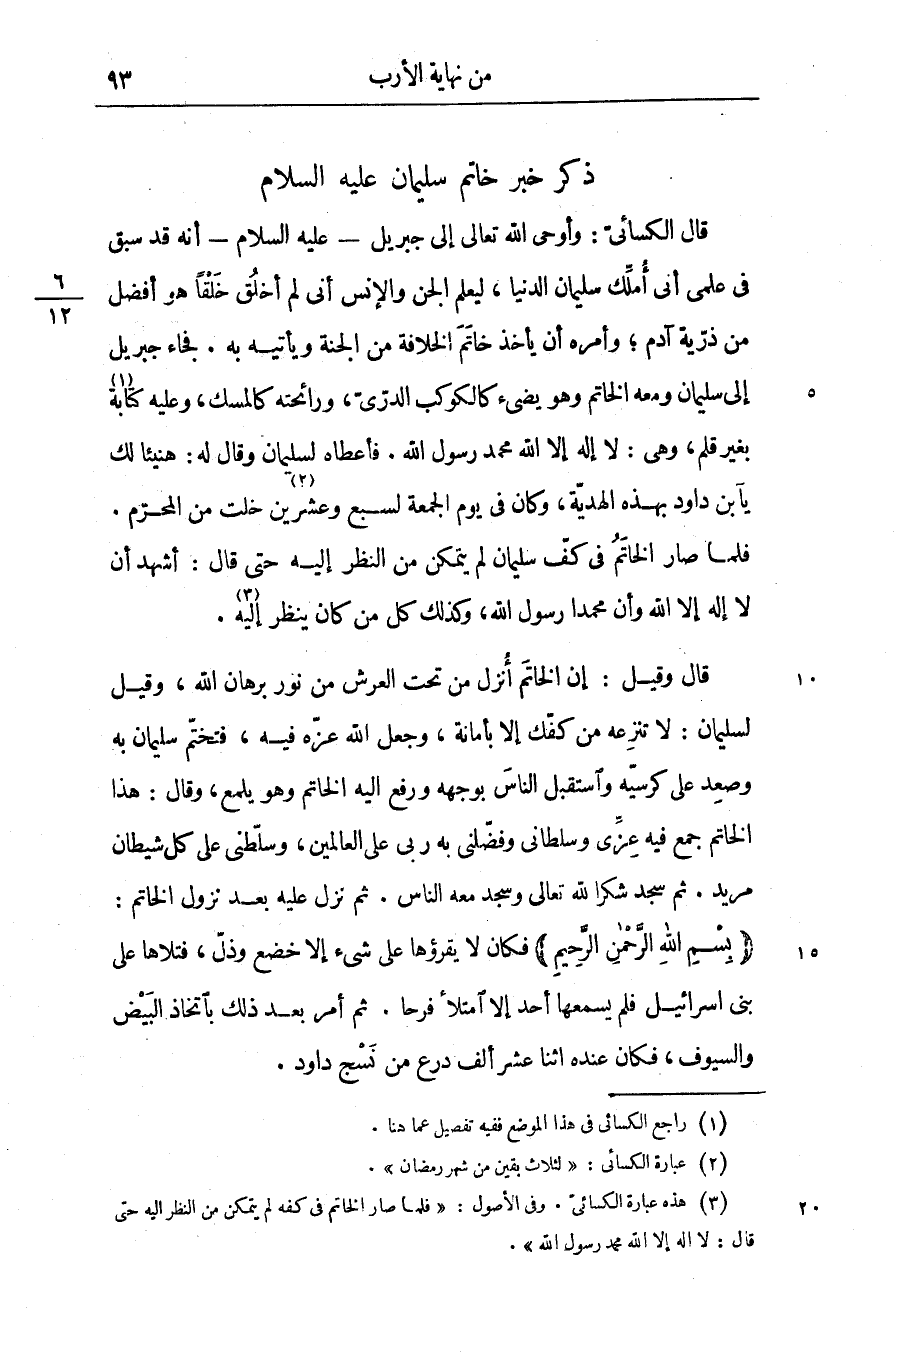 من نهاية الأرب ٩٣
ذكر خبر خاتم سليمان عليه السلام
قال الكسائىّ : وأوحى الله تعالى إلى جبريل — عليه السلام — أنه قد سبق
فى علمى أنى أُملّك سليمان الدنيا ، ليعلم الجن والإنس أنى لم أخلُق خَلْقاً هو أفضل
٦
١٢
من ذرّية آدم ؛ وأمره أن يأخذ خاتَمَ الخلافة من الجنة ويأتيه به . فجاء جبريل
إلى سليمان ومعه الخاتم وهو يضىء كالكوكب الدرّىّ ، ورائحته كالمسك ، وعليه كتابة (١)
٥
بغير قلم ، وهى : لا إله إلا الله محمد رسول الله . فأعطاه لسليمان وقال له : هنيئا لك
يآبن داود بهذه الهديّة ، وكان فى يوم الجمعة لسبع وعشرين (٢) خلت من المحرّم .
فلما صار الخاتَمُ فى كفّ سليمان لم يتمكن من النظر إليه حتى قال : أشهد أن
لا إله إلا الله وأن محمدا رسول الله ، وكذلك كل من كان ينظر إليه (٣) .
قال وقيل : إن الخاتمَ أُنزل من تحت العرش من نور برهان الله ، وقيل
١٠
لسليمان : لا تنزِعه من كفّك إلا بأمانة ، وجعل الله عزّه فيه ، فتختّم سليمان به
وصعِد على كرسيّه وآستقبل الناسَ بوجهه ورفع اليه الخاتم وهو يلمع ، وقال : هذا
الخاتم جمع فيه عِزِّى وسلطانى وفضّلنى به ربى على العالمين ، وسلّطنى على كل شيطان
مريد . ثم سجد شكرا لله تعالى وسجد معه الناس . ثم نزل عليه بعد نزول الخاتم :
﴿ بِسْمِ اللهِ الرَّحْمٰنِ الرَّحِيمِ ﴾ فكان لا يقرؤها على شىء إلا خضع وذلّ ، فتلاها على
١٥
بنى اسرائيل فلم يسمعها أحد إلا آمتلأ فرحا . ثم أمر بعد ذلك بآتخاذ البَيْض
والسيوف ، فكان عنده اثنا عشر ألف درع من نَسْج داود .
(١) راجع الكسائى فى هذا الموضع ففيه تفصيل عما هنا .
(٢) عبارة الكسائى : « لثلاث بقين من شهر رمضان » .
(٣) هذه عبارة الكسائىّ . وفى الأصول : « فلما صار الخاتم فى كفه لم يتمكن من النظر اليه حتى
٢٠
قال : لا اله إلا الله محمد رسول الله » .